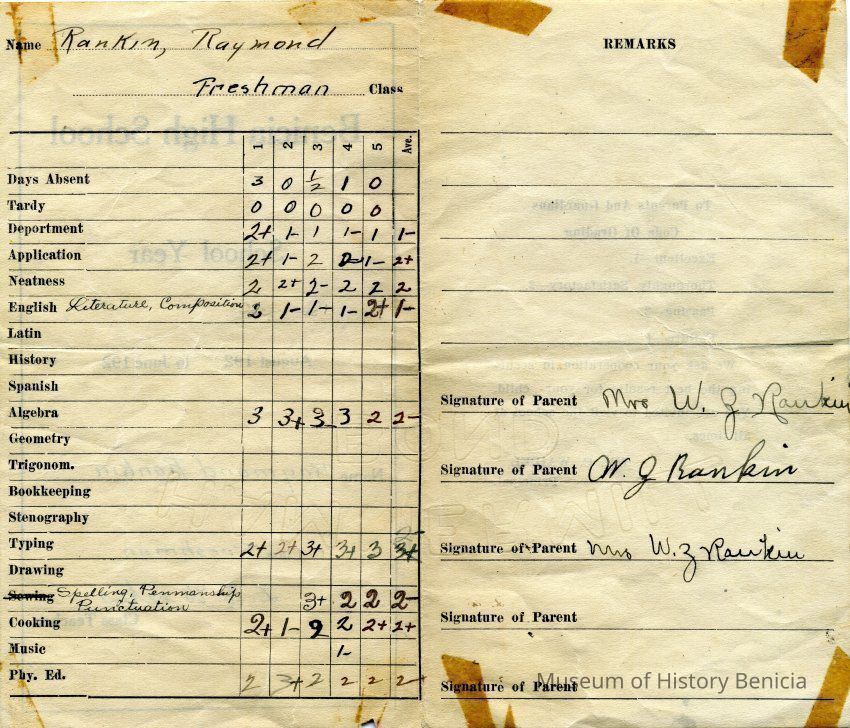 Name Rankin, Raymond
Freshman Class
1 2 3 4 5 Ave.
Days Absent 3 0 1/2 1 0
Tardy 0 0 0 0 0
Deportment 2+ 1- 1 1- 1 1-
Application 2+ 1- 2 2- 1- 2+
Neatness 2 2+ 2- 2 2 2
English Literature, Composition 2 1- 1- 1- 2+ 1-
Latin
History
Spanish
Algebra 3 3+ 3- 3 2 2-
Geometry
Trigonom.
Bookkeeping
Stenography
Typing 2+ 2+ 3+ 3+ 3 3+
Drawing
Sewing Spelling, Penmanship
Punctuation 3+ 2 2 2-
Cooking 2+ 1- 2 2 2+ 2+
Music 1-
Phy. Ed. 2 3+ 2 2 2 2-
REMARKS
Signature of Parent Mrs W. J Rankin
Signature of Parent W. J Rankin
Signature of Parent Mrs W. J Rankin
Signature of Parent
Signature of Parent
Museum of History Benicia